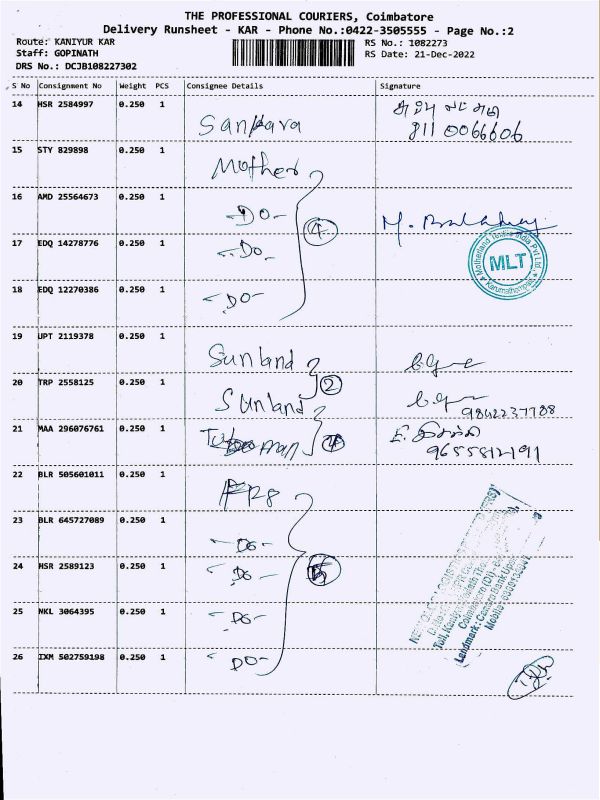 THE PROFESSIONAL COURIERS, Coimbatore
Delivery Runsheet - KAR - Phone No.:0422-3505555 - Page No.:2
Route: KANIYUR KAR
RS No.: 1082273
Staff: GOPINATH
RS Date: 21-Dec-2022
DRS No.: DCJB108227302
S No Consignment No Weight PCS Consignee Details Signature
14 HSR 2584997 0.250 1 Sankara
8110066606
15 STY 829898 0.250 1 Mother
16 AMD 25564673 0.250 1 -DO-
17 EDQ 14278776 0.250 1 -DO- 4
18 EDQ 12270386 0.250 1 -DO-
Motherland Textile India Pvt Ltd
MLT
Karumathampatti
19 UPT 2119378 0.250 1 Sunland
20 TRP 2558125 0.250 1 Sunland 2
9842237788
21 MAA 296076761 0.250 1
9655812191
22 BLR 505601011 0.250 1
23 BLR 645727089 0.250 1 -DO-
24 HSR 2589123 0.250 1 -DO- 5
25 NKL 3064395 0.250 1 -DO-
26 IXM 502759198 0.250 1 -DO-
Landmark: Canara Bank